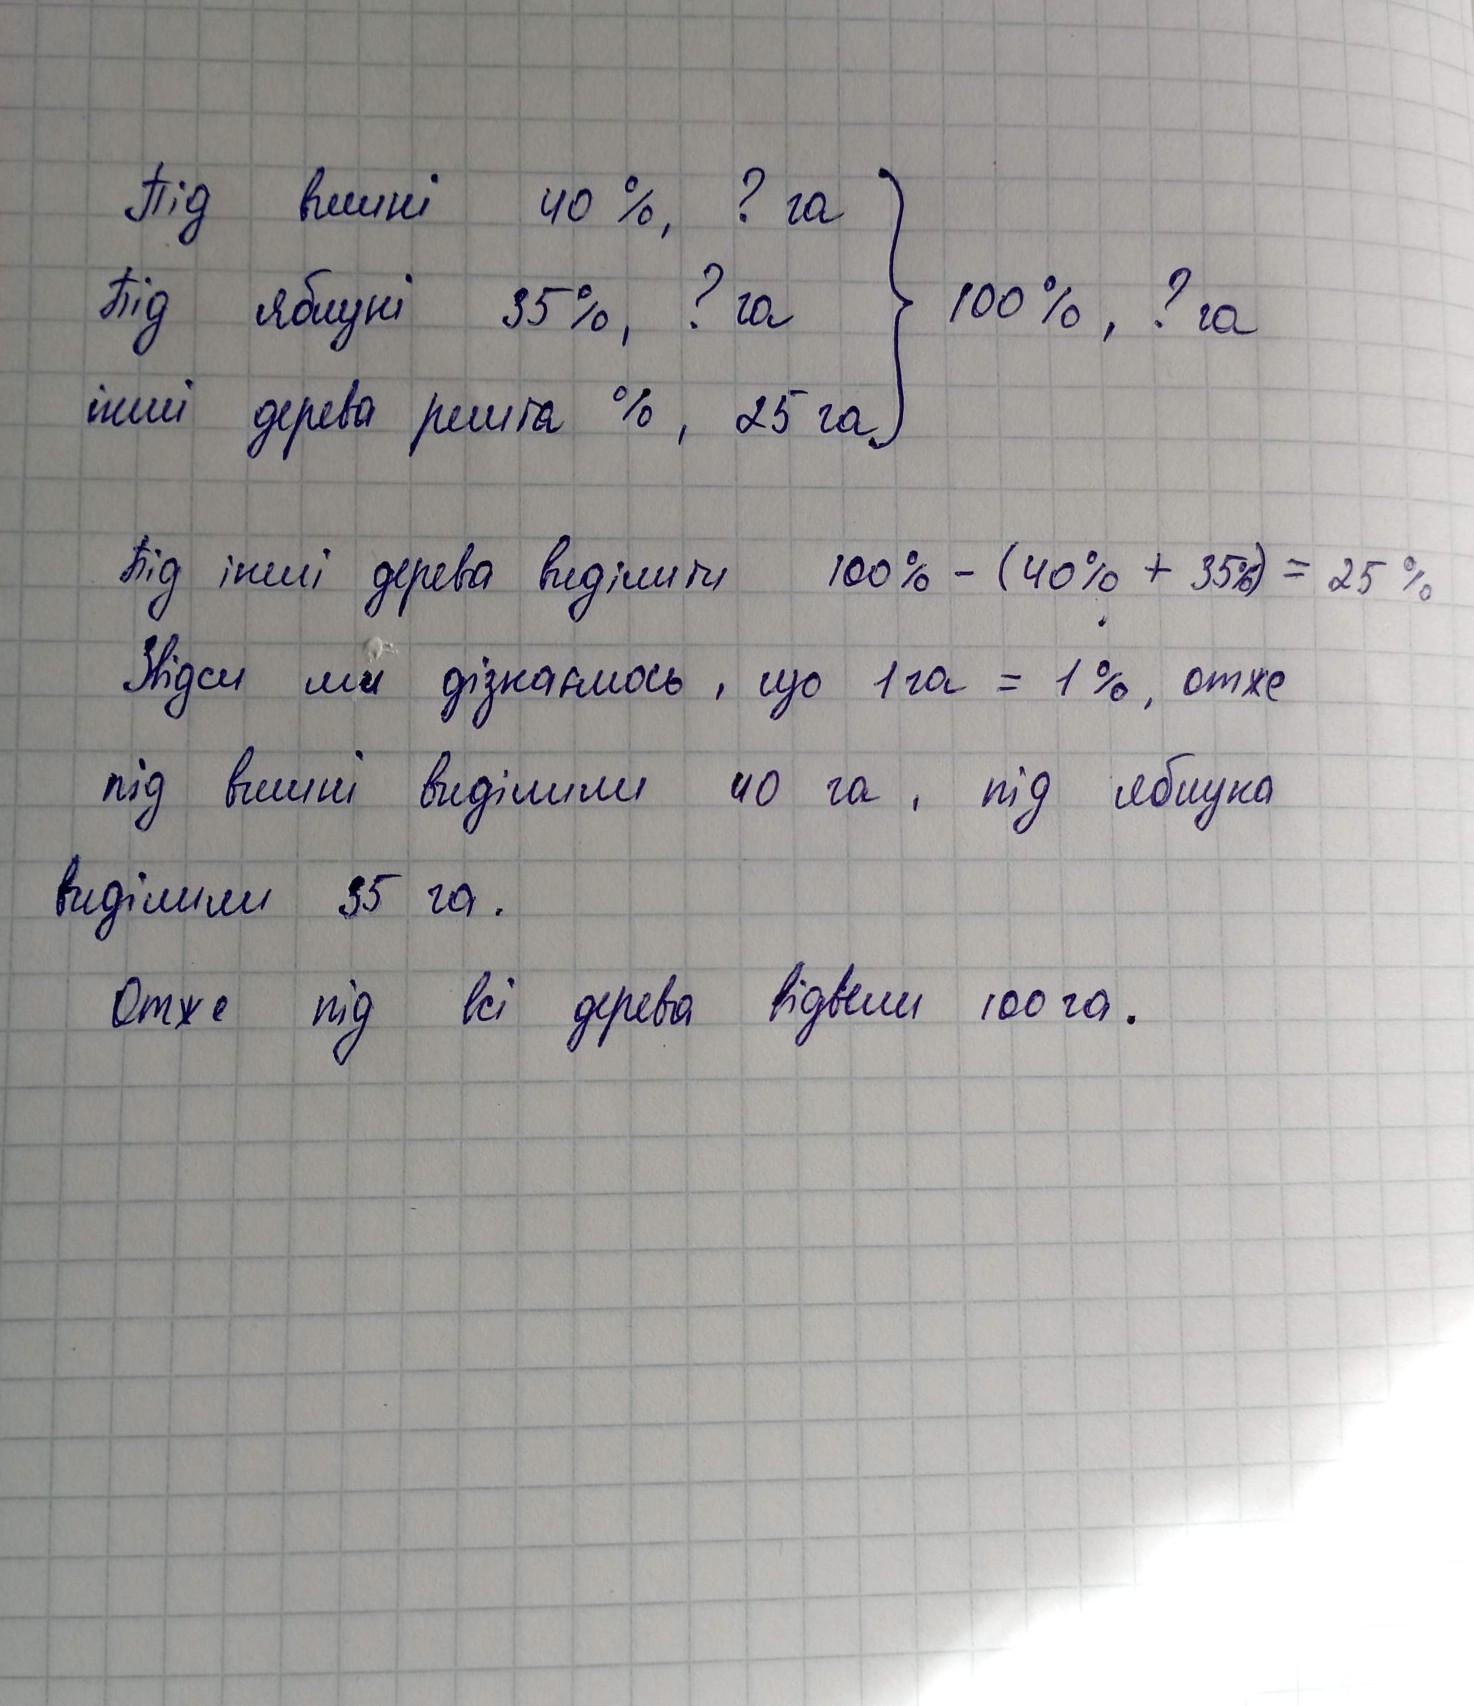 Під вишні 40%, ? га
Під яблуні 35%, ? га } 100%, ? га
інші дерева решта %, 25 га
Під інші дерева виділити 100% - (40% + 35%) = 25%
Звідси ми дізнаємось, що 1 га = 1%, отже
під вишні виділили 40 га, під яблука
виділили 35 га.
Отже під всі дерева відвели 100 га.